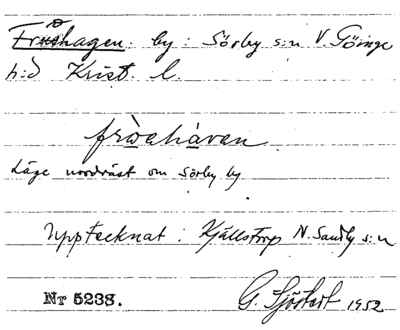 Fröshagen. by: Sörby s:n V. Göinge
h:d Krist. l.
fròehàven
Läge nordväst om Sörby by
Upptecknat: Kjällstorp N. Sandby s:n
Nr 5238.
G. Sjöstedt 1952